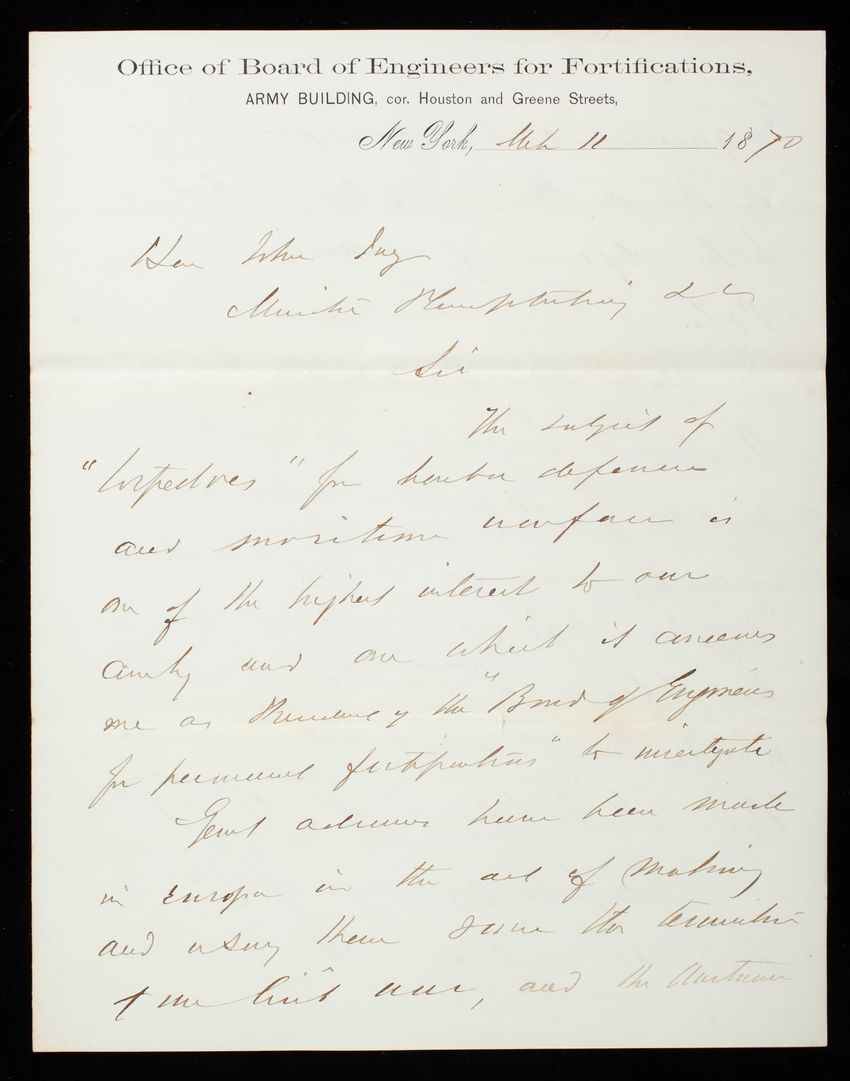 Office of Board of Engineers for Fortifications,
ARMY BUILDING, cor. Houston and Greene Streets,
New York, Mch 11 1870
Hon John Jay
Minister Plenipotentiary &c
Sir
The subject of
"torpedoes" for harbor defence
and maritime warfare is
one of the highest interest to our
and one which it concerns
me as President of the "Board of Engineers
for permanent fortifications" to investigate
Great advances have been made
in Europe in the art of making
and using them since the termination
of our civil war, and the Austrian